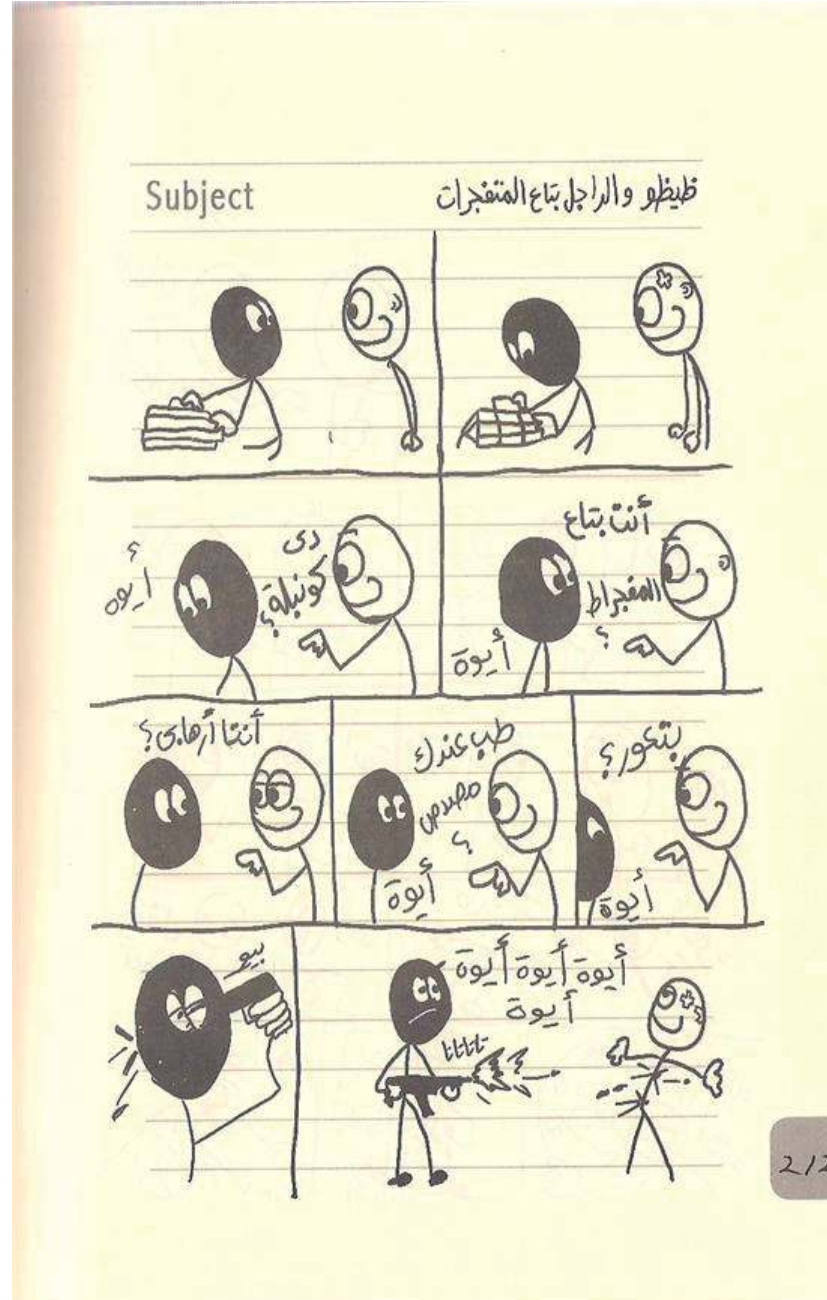 Subject
ظيظو والراجل بتاع المتفجرات
أنت بتاع
المفجراط
؟
أيوة
دى
كونبلة؟
أيوه
؟
بتعور؟
أيوة
طب عندك
مصدص
؟
أيوة
أنتا أرهابى؟
أيوة أيوة أيوة
أيوة
تاتاتاتا
بيو
212